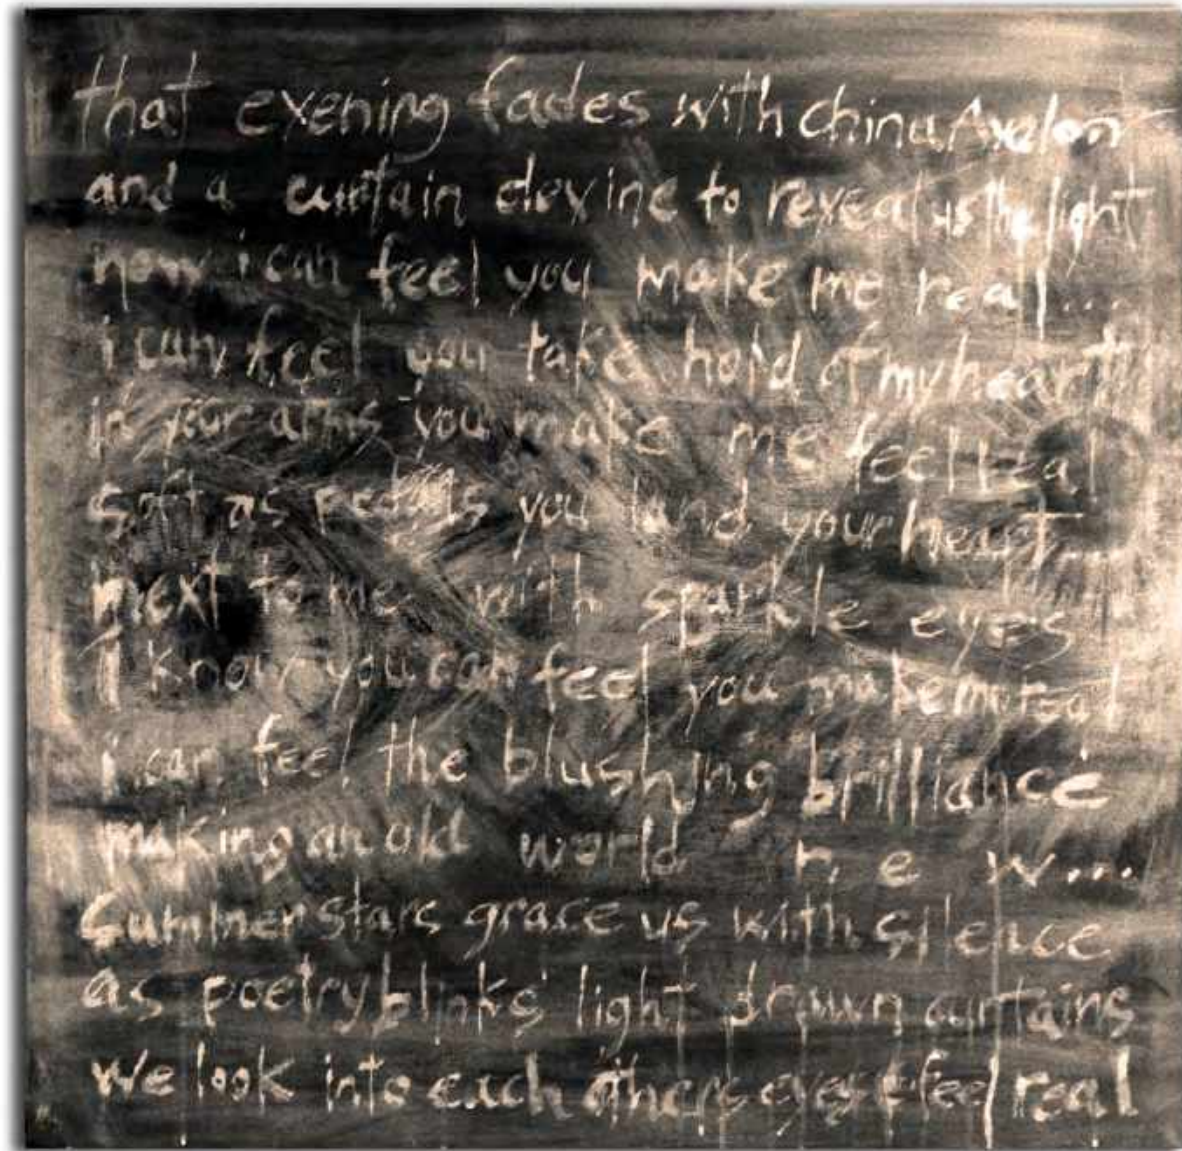 that evening fades with china Avelon
and a curtain devine to reveal us the light
now i can feel you make me real...
i can feel you take hold of my heart
in your arms you make me feel real
soft as pedals you land your heart...
next to me with sparkle eyes
I know you can feel you make me real
i can feel the blushing brilliance
making an old world n e w...
Summer stars grace us with silence
as poetry blinks light drawn curtains
we look into each others eyes & feel real